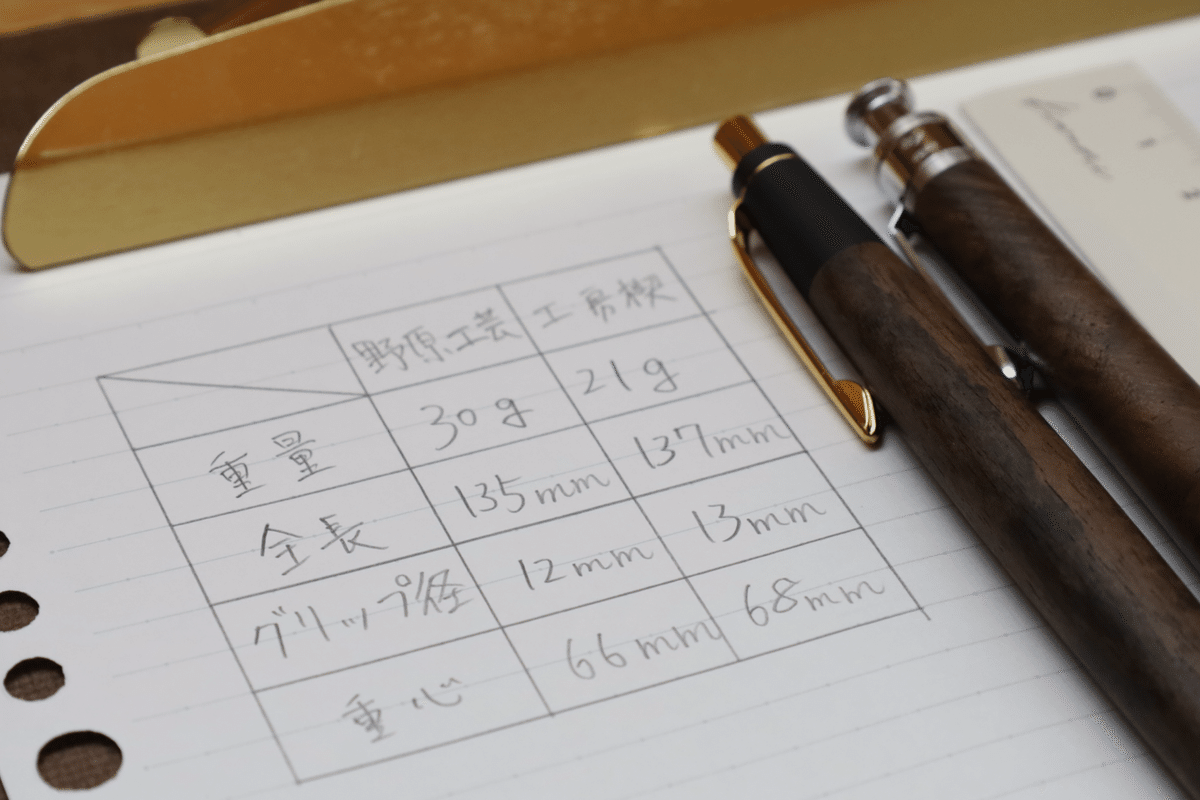 野原工芸 工房楔
重量 30g 21g
全長 135mm 137mm
グリップ径 12mm 13mm
重心 66mm 68mm